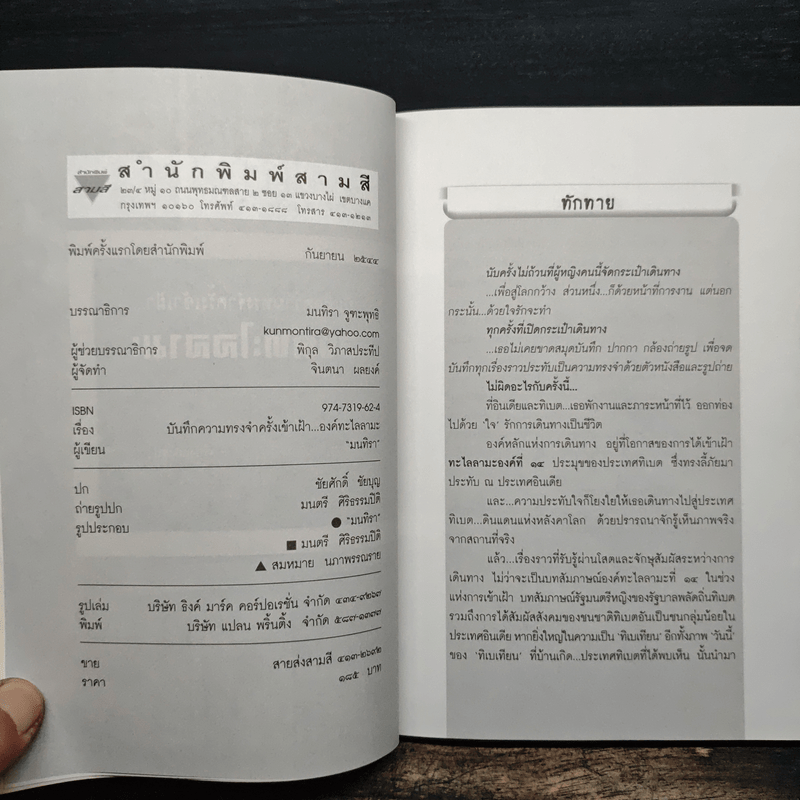 สำนักพิมพ์
สามสี
สำนักพิมพ์สามสี
๒๓/๔ หมู่ ๑๐ ถนนพุทธมณฑลสาย ๒ ซอย ๑๓ แขวงบางไผ่ เขตบางแค
กรุงเทพฯ ๑๐๑๖๐ โทรศัพท์ ๔๑๓-๑๘๘๘ โทรสาร ๔๑๓-๑๒๑๓
พิมพ์ครั้งแรกโดยสำนักพิมพ์ กันยายน ๒๕๔๔
บรรณาธิการ มนทิรา จูฑะพุทธิ
kunmontira@yahoo.com
ผู้ช่วยบรรณาธิการ พิกุล วิภาสประทีป
ผู้จัดทำ จินตนา ผลยงค์
ISBN 974-7319-62-4
เรื่อง บันทึกความทรงจำครั้งเข้าเฝ้า...องค์ทะไลลามะ
ผู้เขียน "มนทิรา"
ปก ชัยศักดิ์ ชัยบุญ
ถ่ายรูปปก มนตรี ศิริธรรมปิติ
รูปประกอบ ● "มนทิรา"
■ มนตรี ศิริธรรมปิติ
▲ สมหมาย นภาพรรณราย
รูปเล่ม บริษัท ธิงค์ มาร์ค คอร์ปอเรชั่น จำกัด ๔๓๔-๙๒๖๗
พิมพ์ บริษัท แปลน พริ้นติ้ง จำกัด ๕๘๗-๑๓๗๗
ขาย สายส่งสามสี ๔๑๓-๒๖๙๒
ราคา ๑๘๕ บาท
ทักทาย
นับครั้งไม่ถ้วนที่ผู้หญิงคนนี้จัดกระเป๋าเดินทาง
...เพื่อสู่โลกกว้าง ส่วนหนึ่ง...ก็ด้วยหน้าที่การงาน แต่นอก
กระนั้น...ด้วยใจรักจะทำ
ทุกครั้งที่เปิดกระเป๋าเดินทาง
...เธอไม่เคยขาดสมุดบันทึก ปากกา กล้องถ่ายรูป เพื่อจด
บันทึกทุกเรื่องราวประทับเป็นความทรงจำด้วยตัวหนังสือและรูปถ่าย
ไม่ผิดอะไรกับครั้งนี้...
ที่อินเดียและทิเบต...เธอพักงานและภาระหน้าที่ไว้ ออกท่อง
ไปด้วย 'ใจ' รักการเดินทางเป็นชีวิต
องค์หลักแห่งการเดินทาง อยู่ที่โอกาสของการได้เข้าเฝ้า
ทะไลลามะองค์ที่ ๑๔ ประมุขของประเทศทิเบต ซึ่งทรงลี้ภัยมา
ประทับ ณ ประเทศอินเดีย
และ...ความประทับใจก็โยงใยให้เธอเดินทางไปสู่ประเทศ
ทิเบต...ดินแดนแห่งหลังคาโลก ด้วยปรารถนาจักรู้เห็นภาพจริง
จากสถานที่จริง
แล้ว...เรื่องราวที่รับรู้ผ่านโสตและจักษุสัมผัสระหว่างการ
เดินทาง ไม่ว่าจะเป็นบทสัมภาษณ์องค์ทะไลลามะที่ ๑๔ ในช่วง
แห่งการเข้าเฝ้า บทสัมภาษณ์รัฐมนตรีหญิงของรัฐบาลพลัดถิ่นทิเบต
รวมถึงการได้สัมผัสสังคมของชนชาติทิเบตอันเป็นชนกลุ่มน้อยใน
ประเทศอินเดีย หากยิ่งใหญ่ในความเป็น 'ทิเบเทียน' อีกทั้งภาพ 'วันนี้'
ของ 'ทิเบเทียน' ที่บ้านเกิด...ประเทศทิเบตที่ได้พบเห็น นั้นนำมา